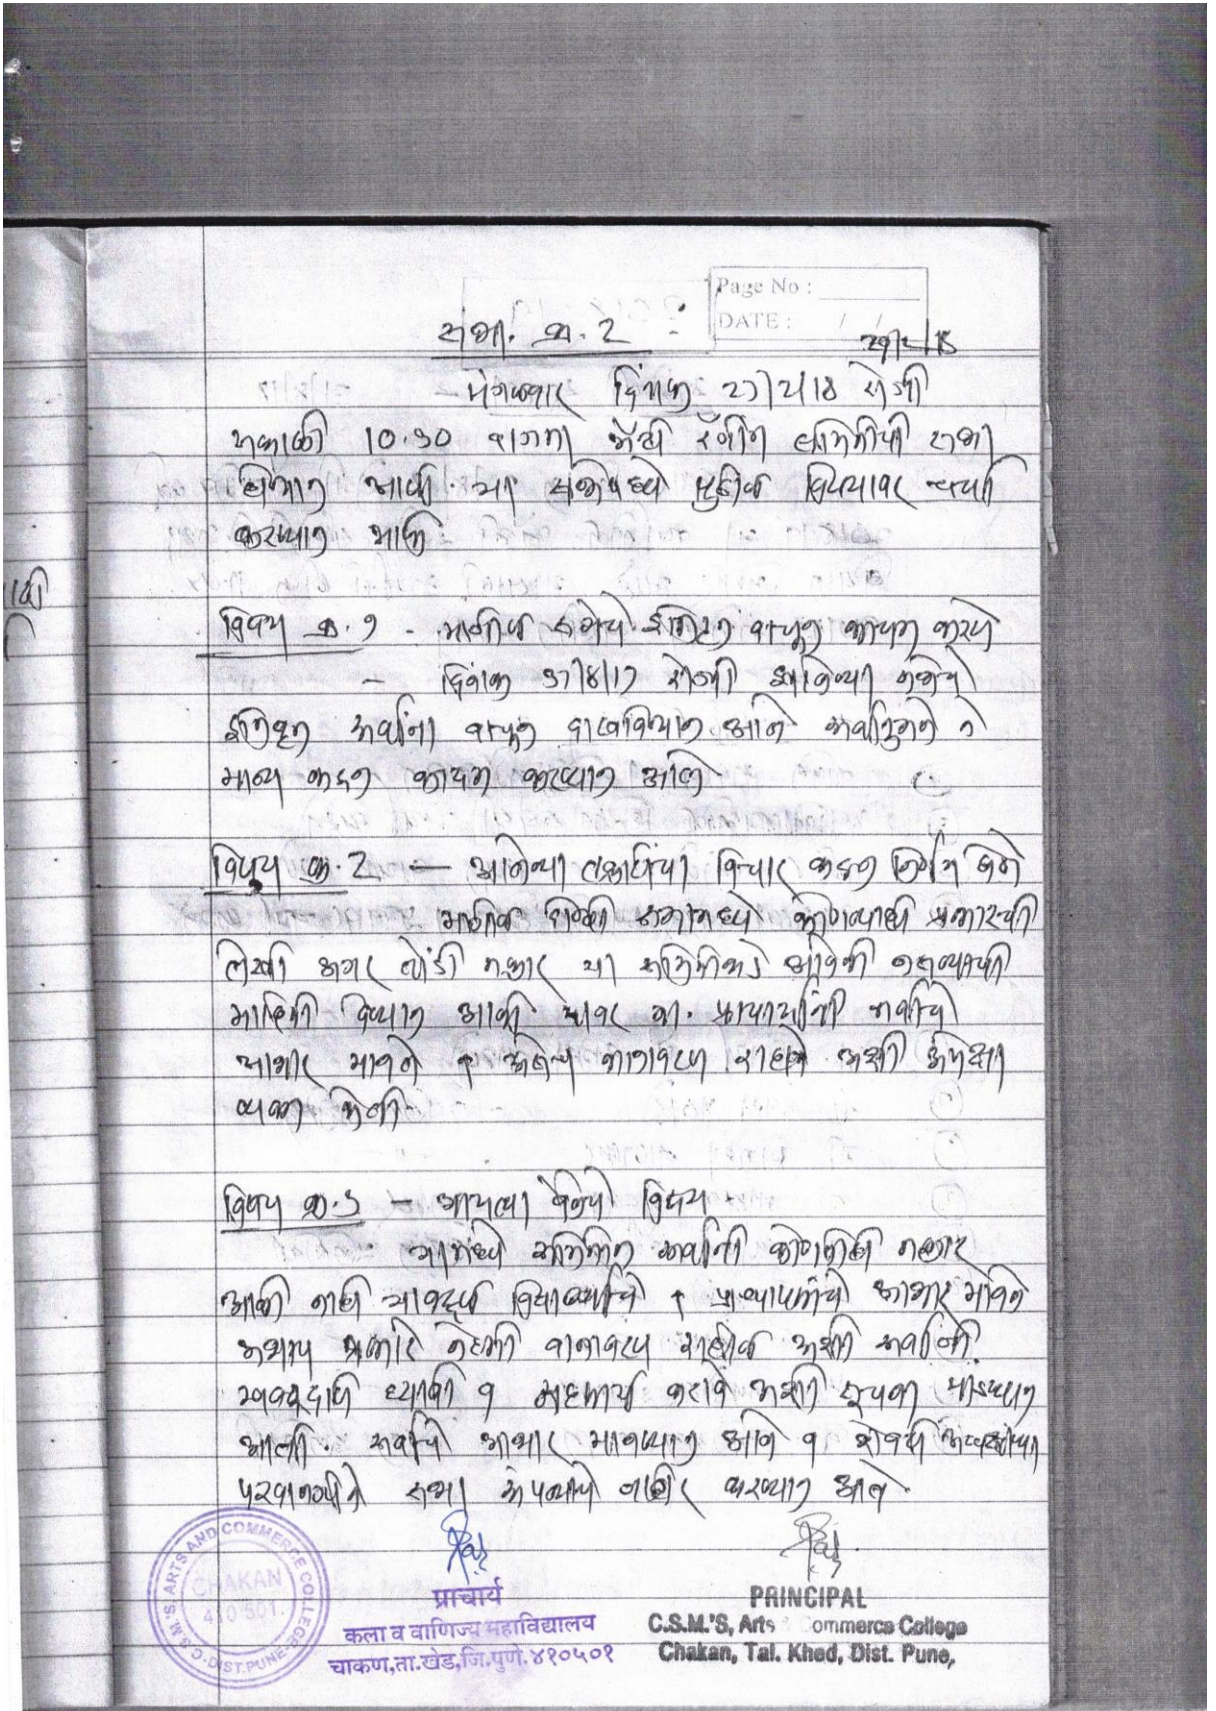 Page No :
DATE : / /
सभा. क्र. २
मंगळवार दिनांक २७।२।१८ रोजी
सकाळी १०.३० वाजता अँटी रॅगींग समितीची सभा
घेण्यात आली. या सभेमध्ये पुढील विषयावर चर्चा
करण्यात आली
विषय क्र. १ - मागील सभेचे इतिवृत्त वाचून कायम करणे
- दिनांक रोजी झालेल्या सभेचे
इतिवृत्त सर्वांना वाचून दाखविण्यात आले सर्वानुमते ते
मान्य करून कायम करण्यात आले
विषय क्र. २ - आलेल्या तक्रारींचा विचार करून निर्णय घेणे
मागील सभामध्ये कोणत्याही प्रकारची
लेखी अगर तोंडी तक्रार या समितीकडे आलेली नसल्याची
माहिती देण्यात आली. यावर मा. प्राचार्यांनी सर्वांचे
आभार मानले व असेच वातावरण राहावे अशी अपेक्षा
व्यक्त केली
विषय क्र. ३ - आयत्या वेळेचे विषय
यामध्ये समितीत सर्वांनी कोणतीही तक्रार
आली नाही याबद्दल विद्यार्थ्यांचे व प्राध्यापकांचे आभार मानले
अशाच प्रकारे नेहमी वातावरण राहील अशी सर्वांनी
खबरदारी घ्यावी व सहकार्य करावे अशी सूचना मांडण्यात
आली. सर्वांचे आभार मानण्यात आले व शेवटी अध्यक्षांच्या
परवानगीने सभा संपल्याचे जाहीर करण्यात आले.
C.S.M.'S. ARTS AND COMMERCE COLLEGE
CHAKAN
410 501.
DIST. PUNE
प्राचार्य
कला व वाणिज्य महाविद्यालय
चाकण,ता.खेड,जि.पुणे.४१०५०१
PRINCIPAL
C.S.M.'S, Arts & Commerce College
Chakan, Tal. Khed, Dist. Pune,